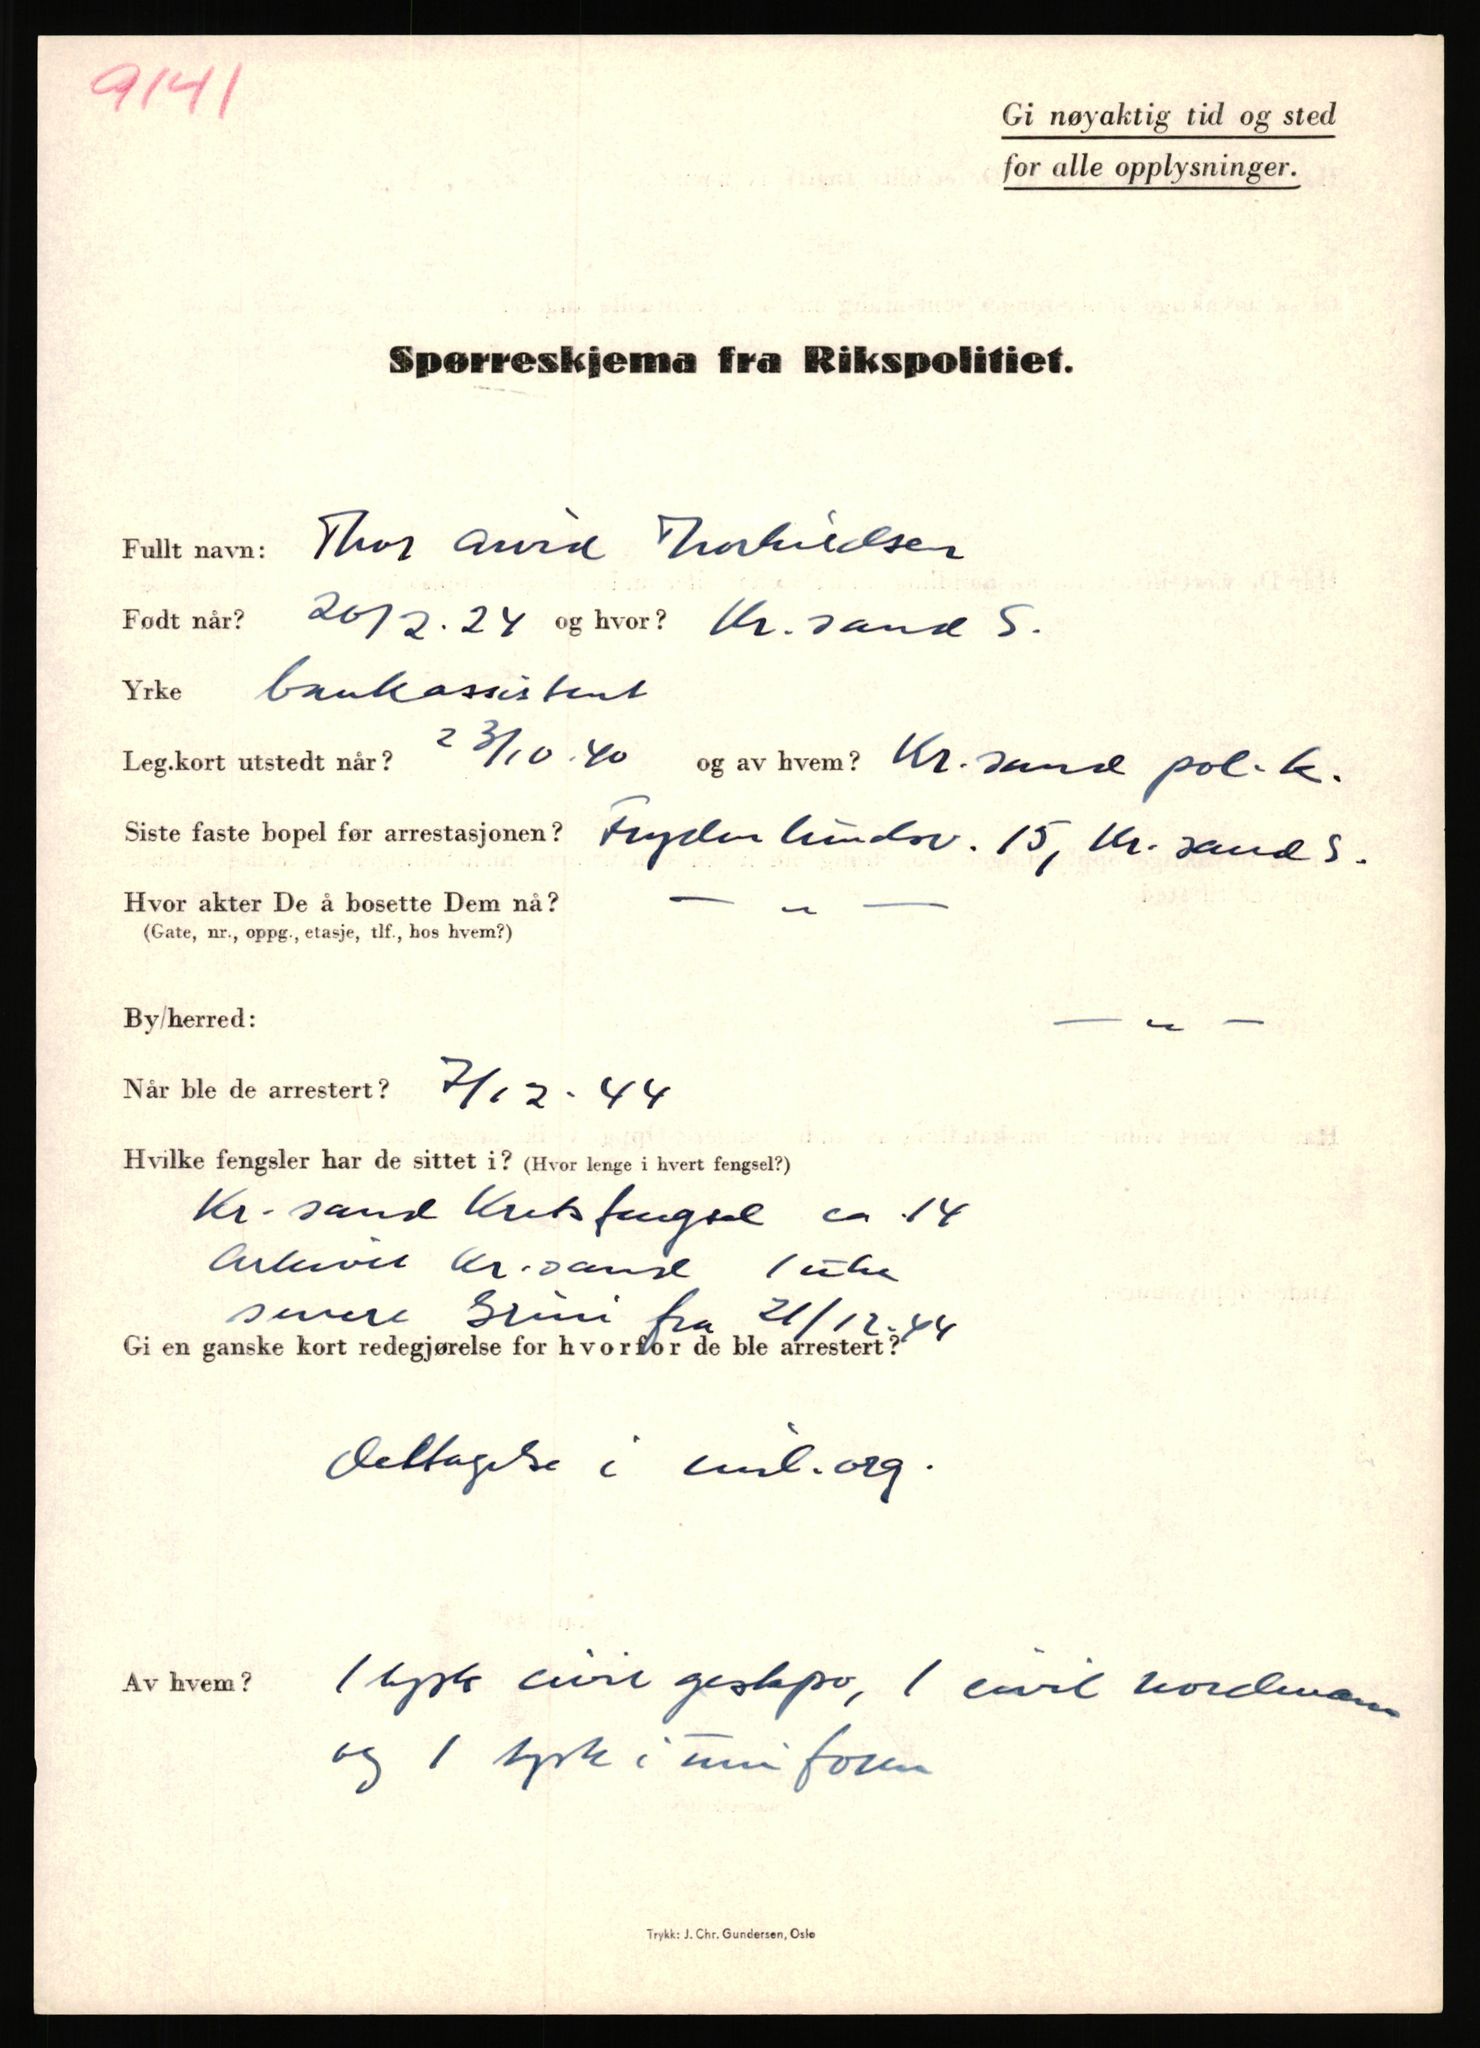 9141
Gi nøyaktig tid og sted
for alle opplysninger.
Spørreskjema fra Rikspolitiet.
Fullt navn: Thor Arvid
Født når? 20/2.24 og hvor? Kr.sand S.
Yrke bankassistent
Leg.kort utstedt når? 23/10.40 og av hvem? Kr.sand pol.k.
Siste faste bopel før arrestasjonen? 15, Kr.sand S.
Hvor akter De å bosette Dem nå? — „ —
(Gate, nr., oppg., etasje, tlf., hos hvem?)
By/herred: — „ —
Når ble de arrestert? 7/12.44
Hvilke fengsler har de sittet i? (Hvor lenge i hvert fengsel?)
Kr.sand Kretsfengsel ca 14
Arkivet Kr.sand 1 uke
senere Grini fra 21/12.44
Gi en ganske kort redegjørelse for hvorfor de ble arrestert?
Deltagelse i mil.org.
Av hvem? 1 tysk civil gestapo, 1 civil nordmann
og 1 tysk i uniform
Trykk: J. Chr. Gundersen, Oslo